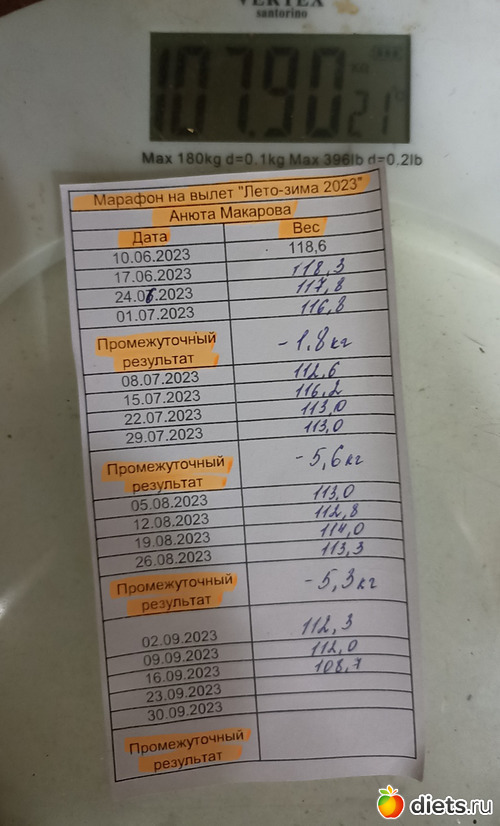 VERTEX
santorino
107.90 KG
21 °C
Max 180kg d=0.1kg Max 396lb d=0.2lb
Марафон на вылет "Лето-зима 2023"
Анюта Макарова
Дата Вес
10.06.2023 118,6
17.06.2023 118,3
24.06.2023 117,8
01.07.2023 116,8
Промежуточный
результат
-1.8 кг
08.07.2023 112,6
15.07.2023 116,2
22.07.2023 113,0
29.07.2023 113,0
Промежуточный
результат
-5,6 кг
05.08.2023 113,0
12.08.2023 112,8
19.08.2023 114,0
26.08.2023 113,3
Промежуточный
результат
-5,3 кг
02.09.2023 112,3
09.09.2023 112,0
16.09.2023 108,7
23.09.2023
30.09.2023
Промежуточный
результат
diets.ru